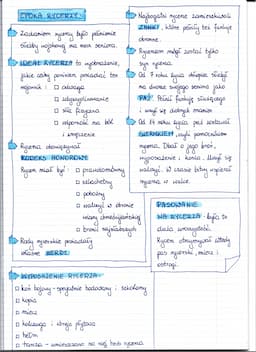 EPOKA RYCERZY
Zadaniem rycerzy było pełnienie
służby wojskowej na rzecz seniora.
IDEAŁ RYCERZA to wyobrażenie,
jakie cechy powinien posiadać ten
rycerz:
odwaga
siła fizyczna
odporność na ból
i zmęczenie
Rycerza obowiązywał
KODEKS HONOROWY
Rycerz miał być:
prawdomówny
szlachetny
pobożny
walczyć w obronie
wiary chrześcijańskiej
bronić najsłabszych
Rody rycerskie posiadały
własne HERBY.
WYPOSAŻENIE RYCERZA:
koń bojowy - specjalnie hodowany i szkolony
kopia
miecz
kolczuga i zbroja płytowa
hełm
tarcza - umieszczano na niej herb rycerza
Najbogatsi rycerze zamieszkiwali
ZAMKI, które pełniły też funkcje
obronne.
Rycerzem mógł zostać tylko
syn rycerza.
Od 7 roku życia chłopiec służył
na dworze swojego seniora jako
PAŹ. Pełnił funkcję służącego
i uczył się dobrych manier.
Od 14 roku życia był
GIERMKIEM, czyli pomocnikiem
rycerza. Dbał o jego broń,
wyposażenie i konia. Uczył się
walczyć. W czasie bitwy wspierał
rycerza w walce.
PASOWANIE
NA RYCERZA - była to
duża uroczystość.
Rycerz otrzymywał wtedy
pas rycerski, miecz i
ostrogi.